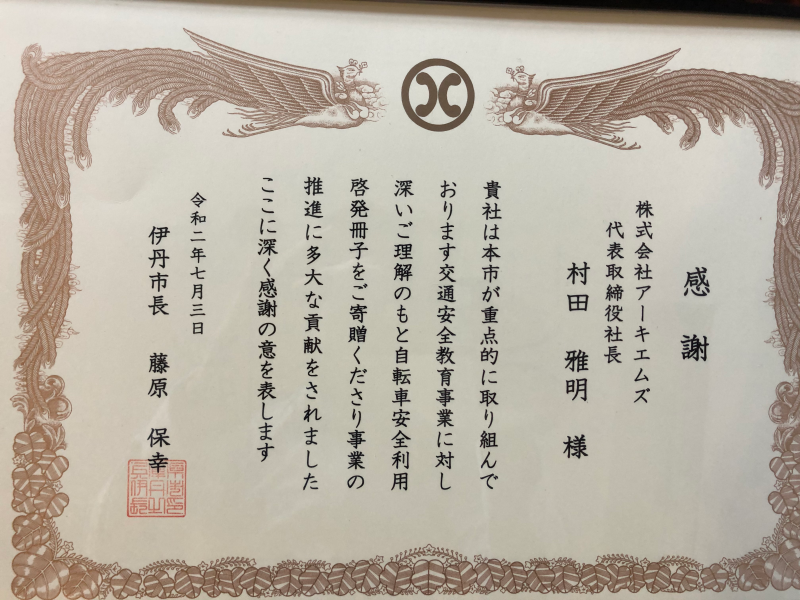 感謝
株式会社アーキエムズ
代表取締役社長
村田 雅明 様
貴社は本市が重点的に取り組んで
おります交通安全教育事業に対し
深いご理解のもと自転車安全利用
啓発冊子をご寄贈くださり事業の
推進に多大な貢献をされました
ここに深く感謝の意を表します
令和二年七月三日
伊丹市長 藤原 保幸